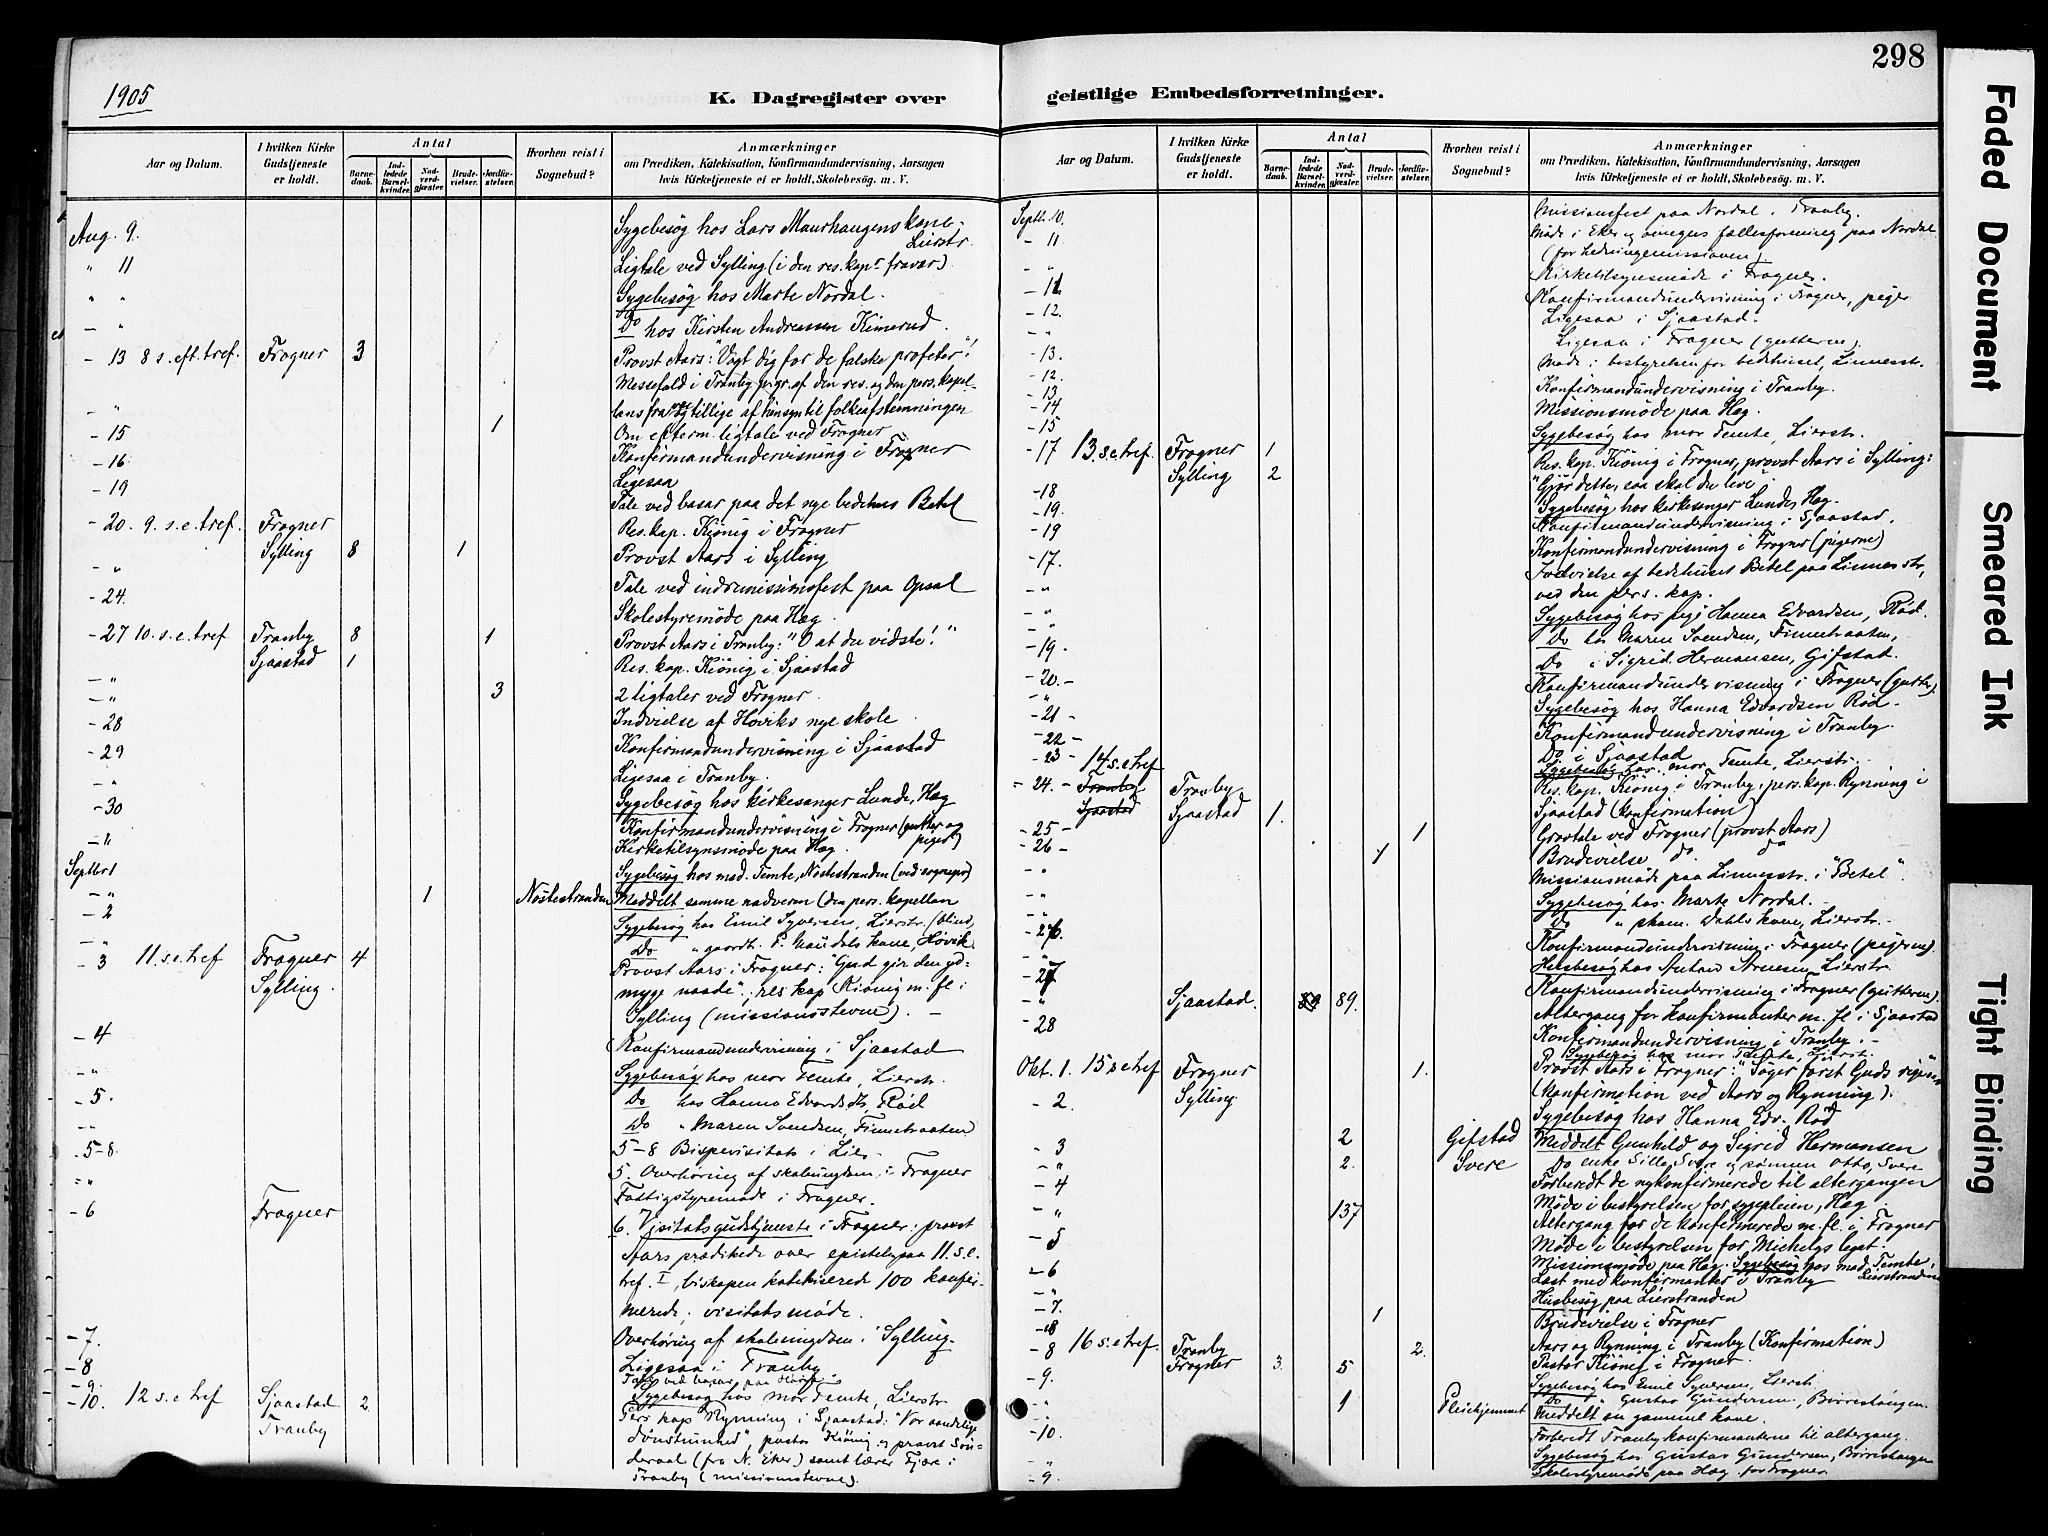 1905
K. Dagregister over
geistlige Embedsforretninger.
298
Faded Document
Smeared Ink
Tight Binding
Aar og Datum.
I hvilken Kirke Gudstjeneste er holdt.
Antal
Barnedaab.
Indledede Barselkvinder.
Nadverdgjester.
Brudevielser.
Jordfæstelser.
Hvorhen reist i Sognebud?
Anmærkninger
om Prædiken, Katekisation, Konfirmandundervisning, Aarsagen
hvis Kirketjeneste ei er holdt, Skolebesøg. m. V.
Aug. 9. Sygebesøg hos Lars Maurhaugens kone,
Lierstr.
" 11 Ligtale ved Sylling (i den res. kap.s fravær)
" " Sygebesøg hos Marte Nordal.
- " Do hos Kirsten Andreassen Kimerud.
- 13 8 s. eft. tref. Frogner 3 Provst Aars: "Vogt dig for de falske profeter"!
Messefald i Tranby pgr. af den res. og den pers. kapel-
lans fra og tillige af hensyn til folkeafstemningen
- " 1 Om efterm. ligtale ved Frogner
- 15 Konfirmandundervisning i Frogner
- 16. Ligesaa
- 19 Tale ved basar paa det nye bedehus Betel
- 20. 9. s. e. tref. Frogner Res. kap. Kiönig i Frogner
Sylling 8 1 Provst Aars i Sylling
- " Tale ved indremissionsfest paa Opsal
- 24. Skolestyremøde paa Hæg.
- 27 10. s. e. tref Tranby 8 1 Provst Aars i Tranby: "O at du vidste!"
Sjaastad 1 Res. kap. Kiönig i Sjaastad
- " 3 2 ligtaler ved Frogner.
- " Indvielse af Høviks nye skole
- 28 Konfirmandundervisning i Sjaastad
- 29 Ligesaa i Tranby.
- " Sygebesøg hos kirkesanger Lunde, Hæg
- 30 Konfirmandundervisning i Frogner (gutter og
piger)
- " Kirketilsynsmøde paa Hæg.
Septbr 1 Sygebesøg hos mad. Temte, Nøstestranden (ved sognepr)
- " 1 Nøstestranden Meddelt samme nadveren (den pers. kapellan
- 2 Sygebesøg hos Emil Syversen, Lierstr. (blind)
- " Do " gaardbr. P. kone, Høvik
- 3 11. s. e. tref Frogner 4 Provst Aars i Frogner: "Gud gir den yd-
Sylling. myge naade"; res kap Kiönig m. fl i
Sylling (missionsstevne).
- 4 Konfirmandundervisning i Sjaastad
- " Sygebesøg hos mor Temte, Lierstr.
- 5. Do hos Hanna Edvardsdtr, Rød
- " Do " Maren Svendsen, Finnebraaten
5-8. 5-8 Bispevisitats i Lier
- " 5. Overhøring af skoleungdom i Frogner
Fattigstyremøde i Frogner.
- 6 Frogner 6. Visitatsgudstjeneste i Frogner; provst
Aars prædikede over epistelen paa 11. s. e.
tref. I, biskopen katekiserede 100 konfir-
merede; visitatsmøde.
- 7. Overhøring af skoleungdom i Sylling.
- 8 Ligesaa i Tranby
- 9. Tale ved basar paa Høvik
- 10. 12 s. e tref Sjaastad 2 Sygebesøg hos mor Temte, Lierstr.
Tranby Pers kap Rynning i Sjaastad: "Vor aandelige
døvstumhed", pastor Kiönig og provst Søn-
deraal (fra N. Eker) samt lærer Fjøre i
Tranby (missionsstevne).
Aar og Datum.
I hvilken Kirke Gudstjeneste er holdt.
Antal
Barnedaab.
Indledede Barselkvinder.
Nadverdgjester.
Brudevielser.
Jordfæstelser.
Hvorhen reist i Sognebud?
Anmærkninger
om Prædiken, Katekisation, Konfirmandundervisning, Aarsagen
hvis Kirketjeneste ei er holdt, Skolebesøg. m. V.
Septb. 10. Missionsfest paa Nordal i Tranby.
- 11 Møde i Eker og omegns fællesforening paa Nordal
(for hedningemissionen)
- " Kirketilsynsmøde i Frogner.
- 11. Konfirmandundervisning i Frogner, piger
- 12. Ligesaa i Sjaastad.
- " Ligesaa i Frogner (gutterne).
- 13. Møde i bestyrelsen for bedehuset, Linnesstr.
- 12. Konfirmandundervisning i Tranby.
- 13
- 14 Missionsmøde paa Hæg.
- 15 Sygebesøg hos mor Temte, Lierstr.
- 17 13. s. e. tref. Frogner 1 Res. kap. Kiönig i Frogner, provst Aars i Sylling:
Sylling 2 "Gjør dette, saa skal du leve".
- 18 Sygebesøg hos kirkesanger Lunde, Hæg.
- 19. Konfirmandundervisning i Sjaastad.
- 19 Konfirmandundervisning i Frogner (pigerne)
- 17. Indvielse af bedehuset Betel paa Linnesstr,
- " ved den pers. kap.
- " Sygebesøg hos pige Hanna Edvardsen, Rød.
- " Do hos Maren Svendsen, Finnebraaten,
- 19. Do i Sigrid Hermansen, Gifstad.
- 20. - Konfirmandundervisning i Frogner (gutter).
- " Sygebesøg hos Hanna Edvardsen Rød.
- 21 - Konfirmandundervisning i Tranby.
- 22 - Do i Sjaastad
- 23 - 14 s. e tref Sygebesøg hos mor Temte, Lierstr.
- 24. - Tranby Tranby Res. kap. Kiönig i Tranby, pers. kap. Rynning i
Sjaastad Sjaastad 1. Sjaastad (konfirmation)
- 25 - 1 Gravtale ved Frogner (provst Aars)
- 26 - 1 Brudevielse do. do
" Missionsmøde paa Linnesstr. i "Betel".
" Sygebesøg hos Marte Nordal.
" Do " kone, Lierstr.
- 26. Konfirmandundervisning i Frogner (pigerne).
" Husbesøg hos Anton Arnesen, Lierstr.
- 27 Konfirmandundervisning i Frogner (gutterne).
- " Sjaastad. 89 89. Altergang for konfirmanter m. fl i Sjaastad
- 28 Konfirmandundervisning i Tranby.
Sygebesøg hos mor Temte, Lierstr.
Okt. 1. 15 s e tref Frogner 1. Provst Aars i Frogner: "Søger først Guds rige"
Sylling. (konfirmation ved Aars og Rynning).
- 2. Sygebesøg hos Hanna Edv. Rød
- 3 2 Gifstad Meddelt Gunhild og Sigrid Hermansen
- " 2. Svere Do enke Sille Svere og sønnen Otto, Svere
- 4 Forberedt de nykonfirmerede til altergangen
Møde i bestyrelsen for sygepleien, Hæg
- " 137 Altergang for de konfirmerede m. fl. i Frogner
- 5 Møde i bestyrelsen for Michelys legat.
- 6 Missionsmøde paa Hæg. Sygebesøg hos mad. Temte,
Lierstranden
- " Læst med konfirmanter i Tranby
- 7. Husbesøg paa Lierstranden
- 8 1 Brudevielse i Frogner
- 8 16 s. e tref. Tranby 2. Aars og Rynning i Tranby (Konfirmation)
Frogner 3. 5 Pastor Kiönig i Frogner.
- 9. Sygebesøg hos Emil Syversen, Lierstr.
" Do " Gustav Gundersen, Börrestangen.
" 1 Pleiehjemmet Meddelt en gammel kone.
- 10. Forberedt Tranbykonfirmanterne til altergang.
" Sygebesøg hos Gustav Gundersen, Börrestangen
- 9. Skolestyremøde paa Hæg for Frogner.